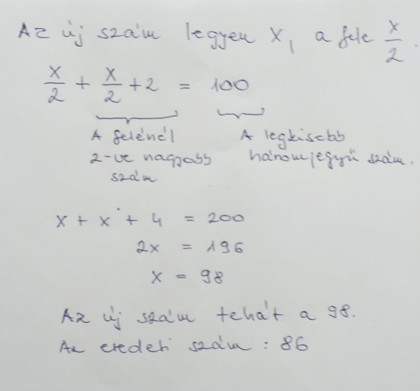 Az új szám legyen x, a fele x/2.
x/2 + x/2 + 2 = 100
A felénél A legkisebb
2-vel nagyobb háromjegyű szám.
szám
x + x + 4 = 200
2x = 196
x = 98
Az új szám tehát a 98.
Az eredeti szám: 86